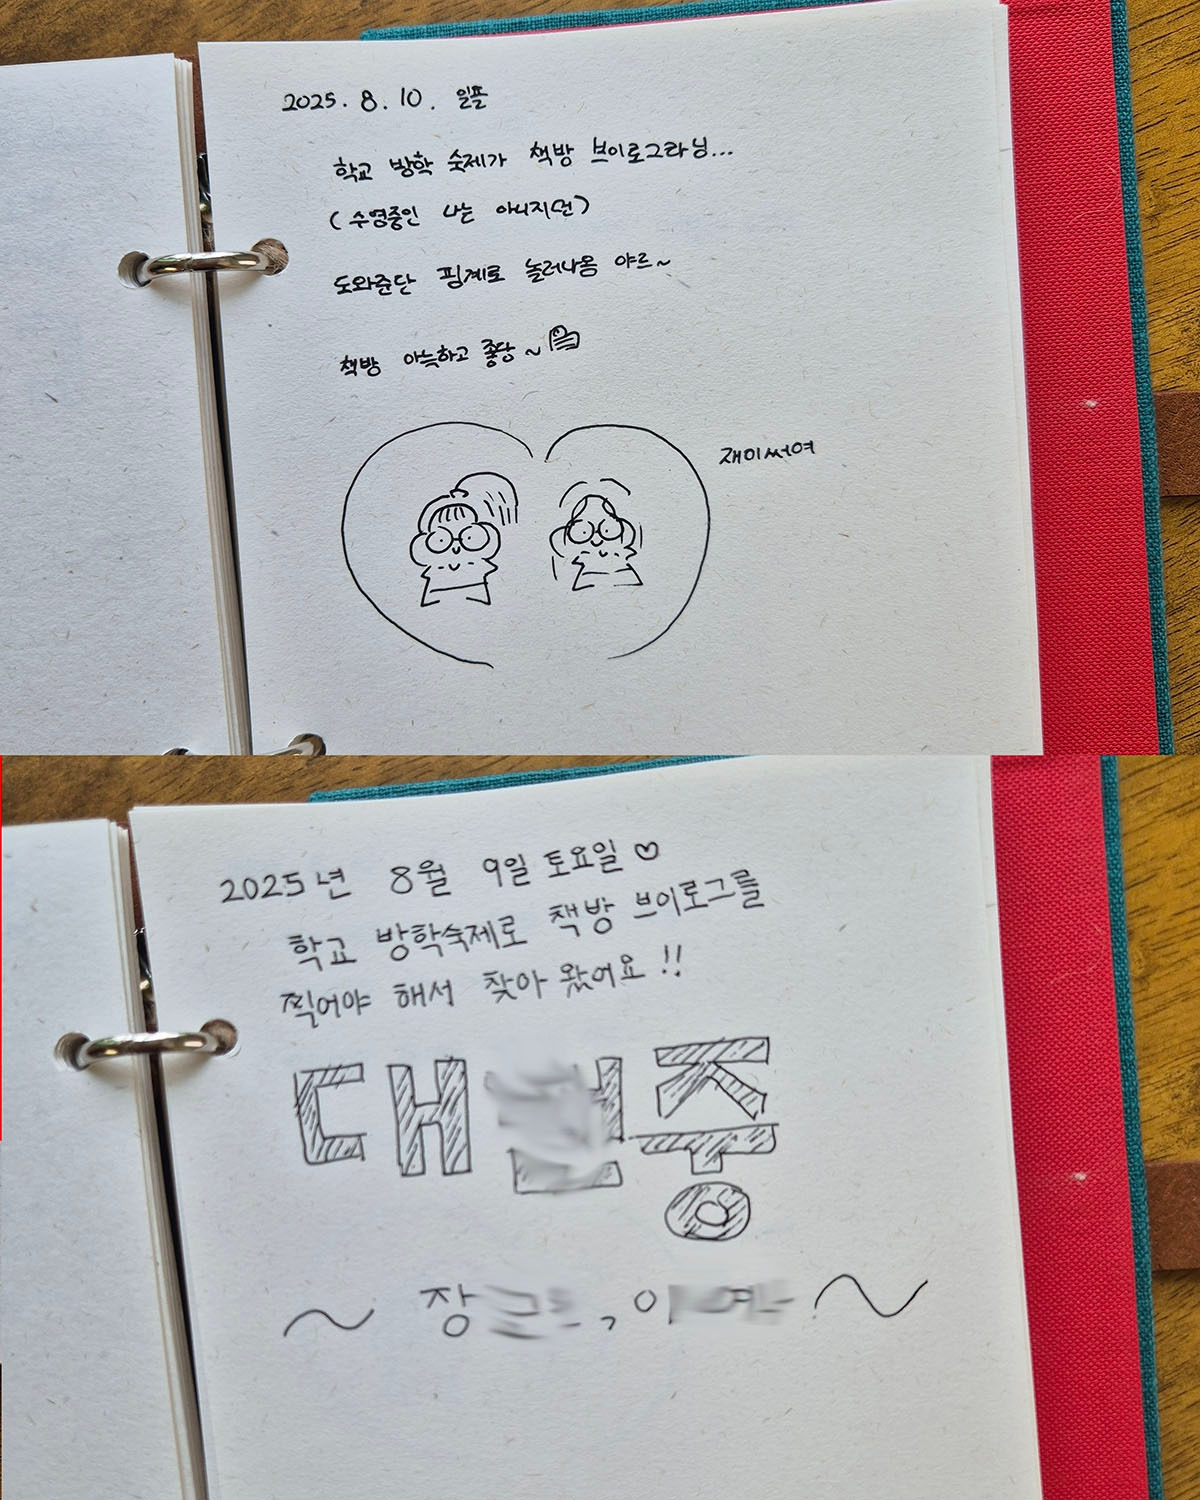 2025. 8. 10. 일욜
학교 방학 숙제가 책방 브이로그라닝...
(수영중인 나는 아니지먼)
도와준단 핑계로 놀러나옴 야르~
책방 아늑하고 좋당~
재미써여
2025년 8월 9일 토요일♡
학교 방학숙제로 책방 브이로그를
찍어야 해서 찾아 왔어요!!
대 중
~ 장 , 이 ~